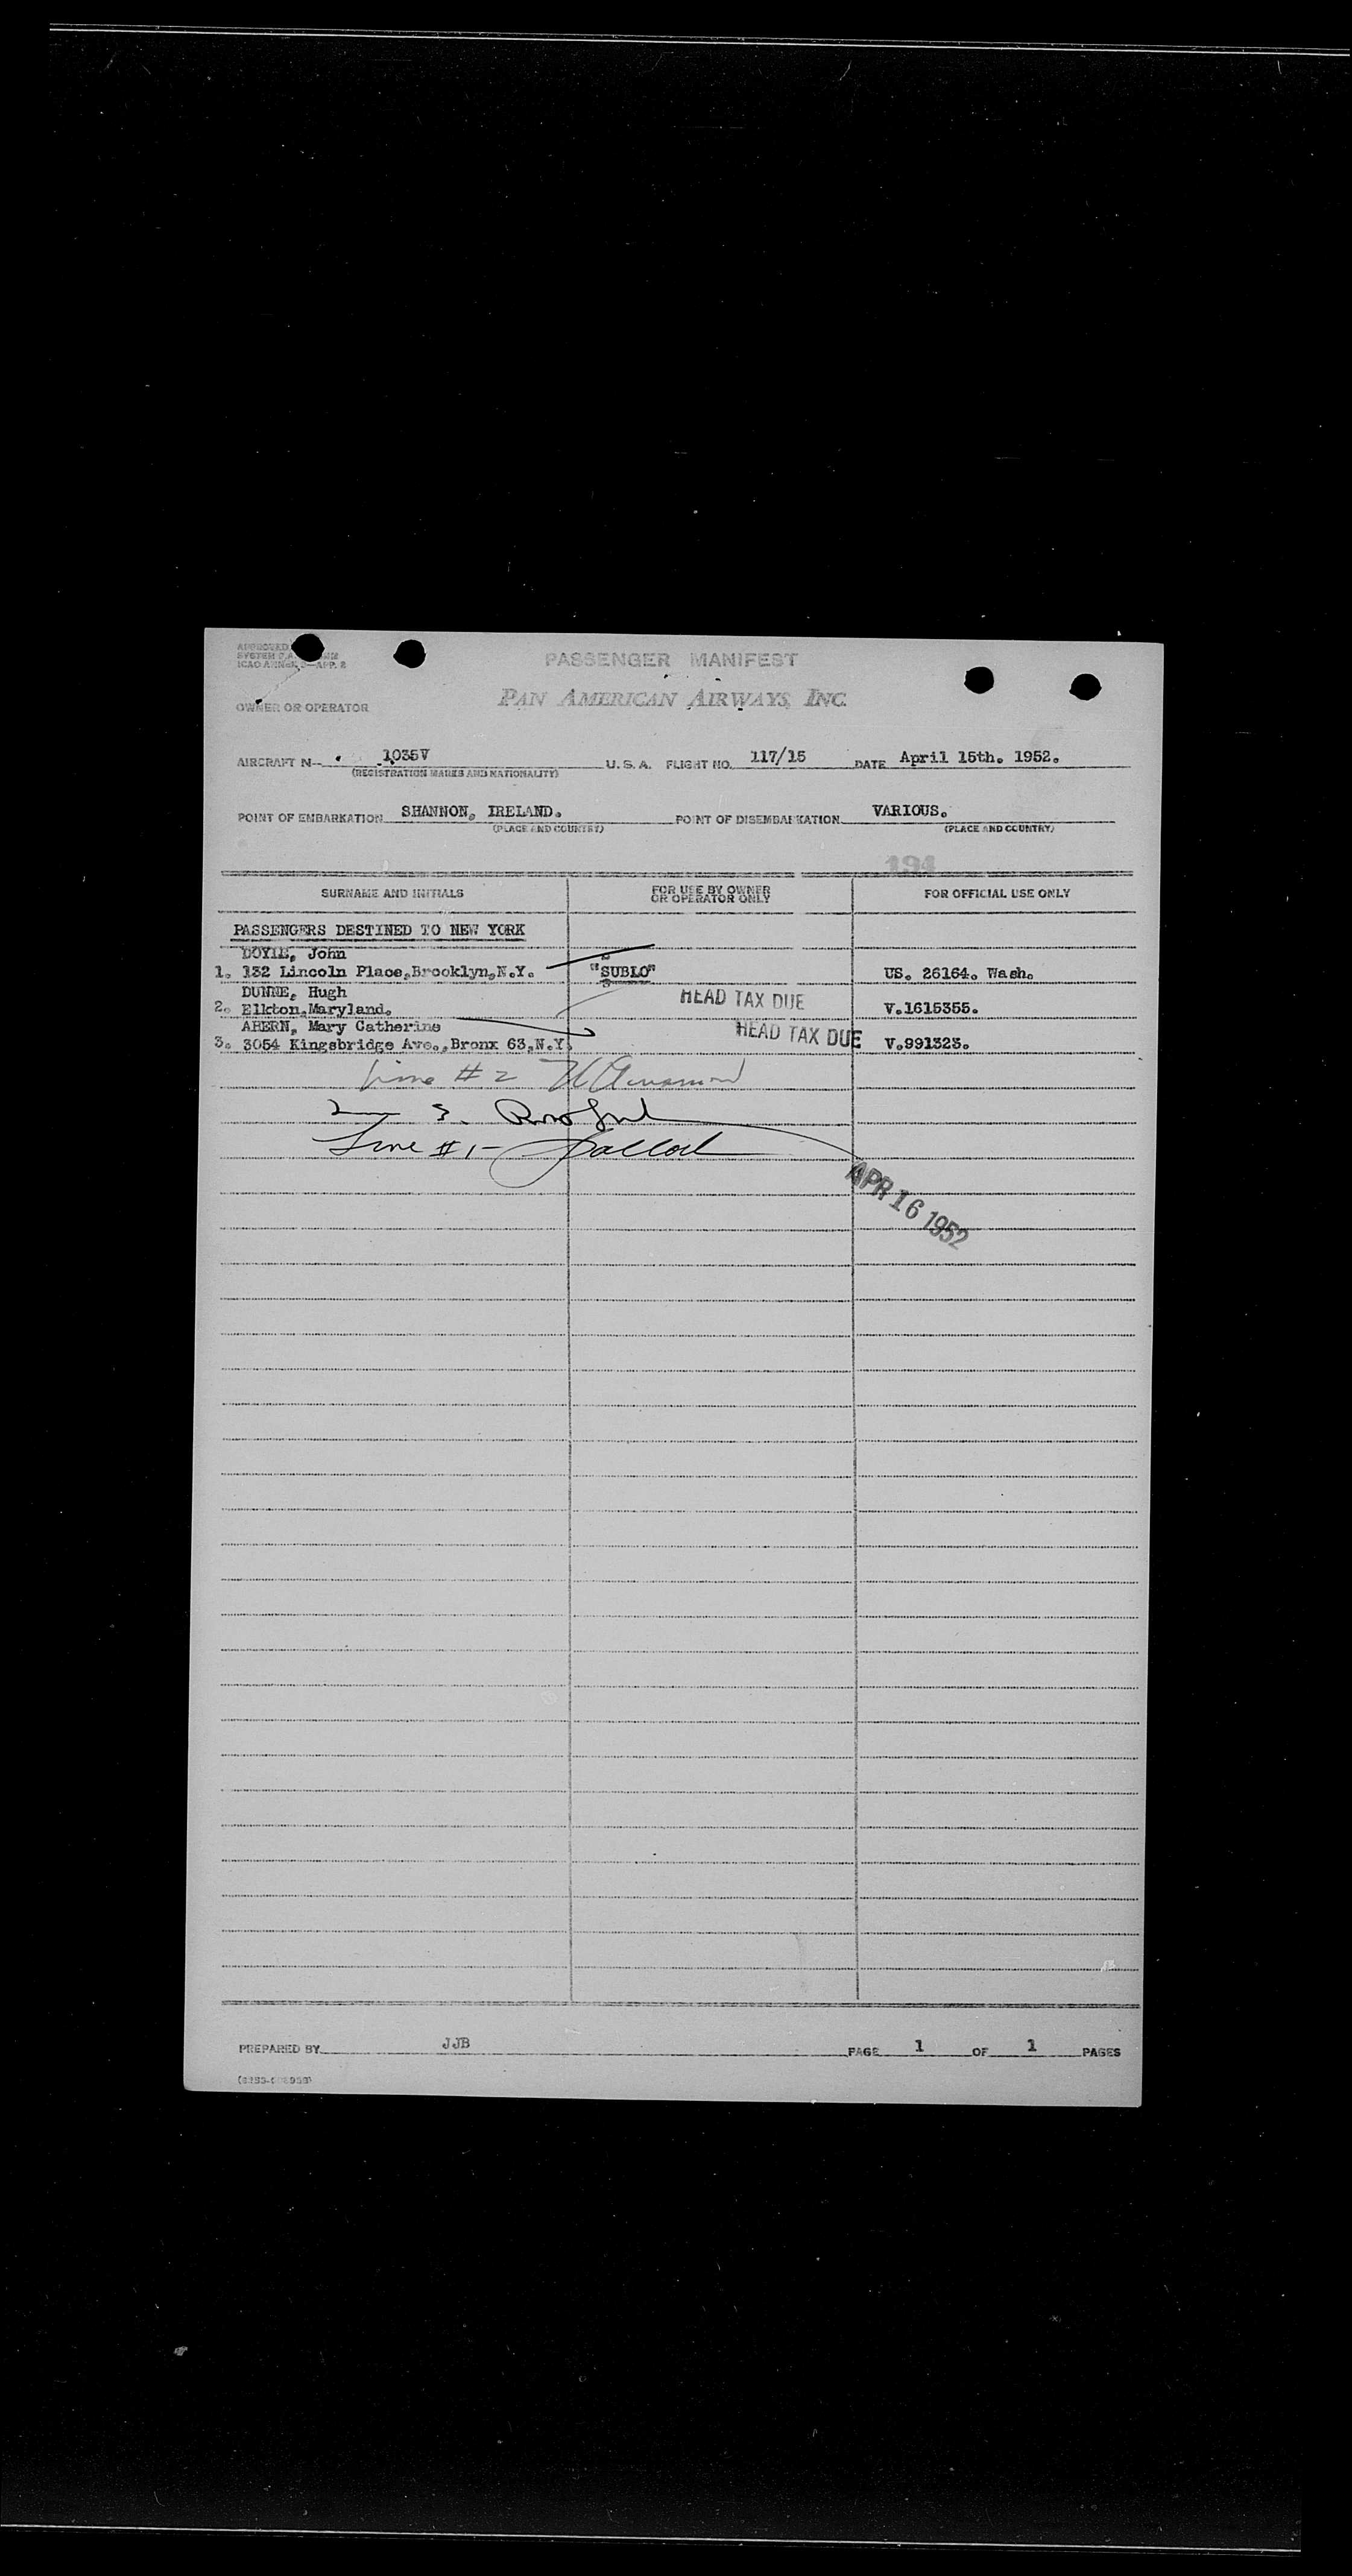 PASSENGER MANIFEST
ICAO ANNEX 9—APP. 2
PAN AMERICAN AIRWAYS, INC.
OWNER OR OPERATOR
AIRCRAFT N-- 1035V U. S. A. FLIGHT NO. 117/15 DATE April 15th. 1952.
(REGISTRATION MARKS AND NATIONALITY)
POINT OF EMBARKATION SHANNON, IRELAND. POINT OF DISEMBARKATION VARIOUS.
(PLACE AND COUNTRY) (PLACE AND COUNTRY)
194
SURNAME AND INITIALS FOR USE BY OWNER OR OPERATOR ONLY FOR OFFICIAL USE ONLY
PASSENGERS DESTINED TO NEW YORK
DOYLE, John
1. 132 Lincoln Place,Brooklyn,N.Y. "SUBLO" US. 26164. Wash.
DUNNE, Hugh HEAD TAX DUE
2. Elkton,Maryland. V.1615355.
AHERN, Mary Catherine HEAD TAX DUE
3. 3054 Kingsbridge Ave.,Bronx 63,N.Y. V.991323.
Line # 2
3.
Line # 1-
APR 16 1952
PREPARED BY JJB PAGE 1 OF 1 PAGES